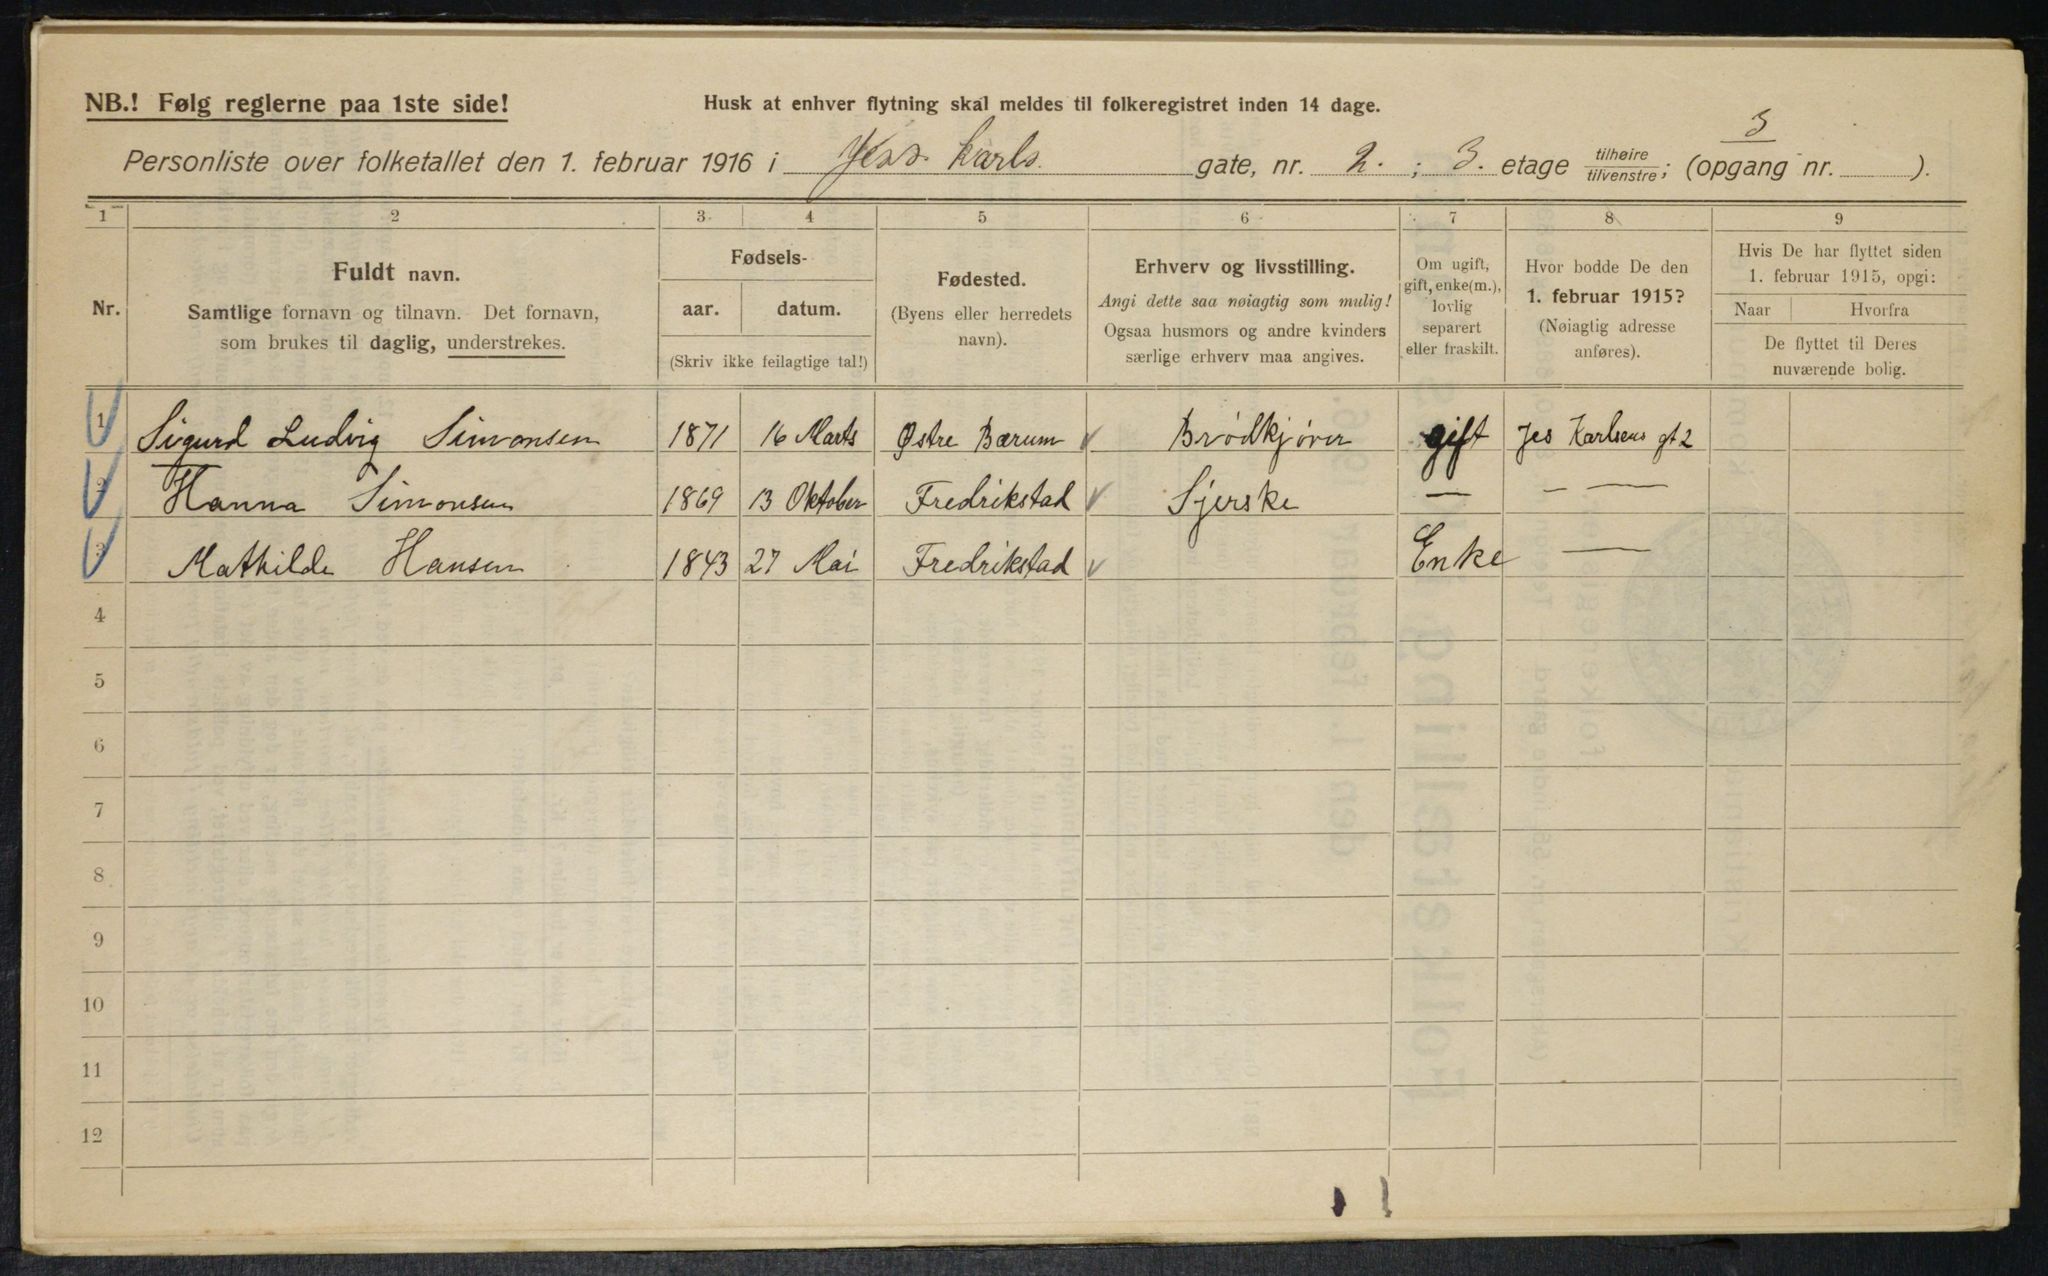 NB.! Følg reglerne paa 1ste side!
Husk at enhver flytning skal meldes til folkeregistret inden 14 dage.
3
Personliste over folketallet den 1. februar 1916 i Jess Karls. gate, nr. 2. ; 3. etage tilhøire/tilvenstre; (opgang nr. ).
1 2 3 4 5 6 7 8 9
Nr.
Fuldt navn.
Samtlige fornavn og tilnavn. Det fornavn,
som brukes til daglig, understrekes.
Fødsels-
aar. datum.
(Skriv ikke feilagtige tal!)
Fødested.
(Byens eller herredets
navn).
Erhverv og livsstilling.
Angi dette saa nøiagtig som mulig!
Ogsaa husmors og andre kvinders
særlige erhverv maa angives.
Om ugift,
gift, enke(m.),
lovlig
separert
eller fraskilt.
Hvor bodde De den
1. februar 1915?
(Nøiagtig adresse
anføres).
Hvis De har flyttet siden
1. februar 1915, opgi:
Naar Hvorfra
De flyttet til Deres
nuværende bolig.
1 Sigurd Ludvig Simonsen 1871 16 Marts Østre Bærum Brödkjörer gift Jes Karlsens gt 2
2 Hanna Simonsen 1869 13 Oktober Fredrikstad Sjerske — – —
3 Mathilde Hansen 1843 27 Mai Fredrikstad Enke —
4
5
6
7
8
9
10
11
12